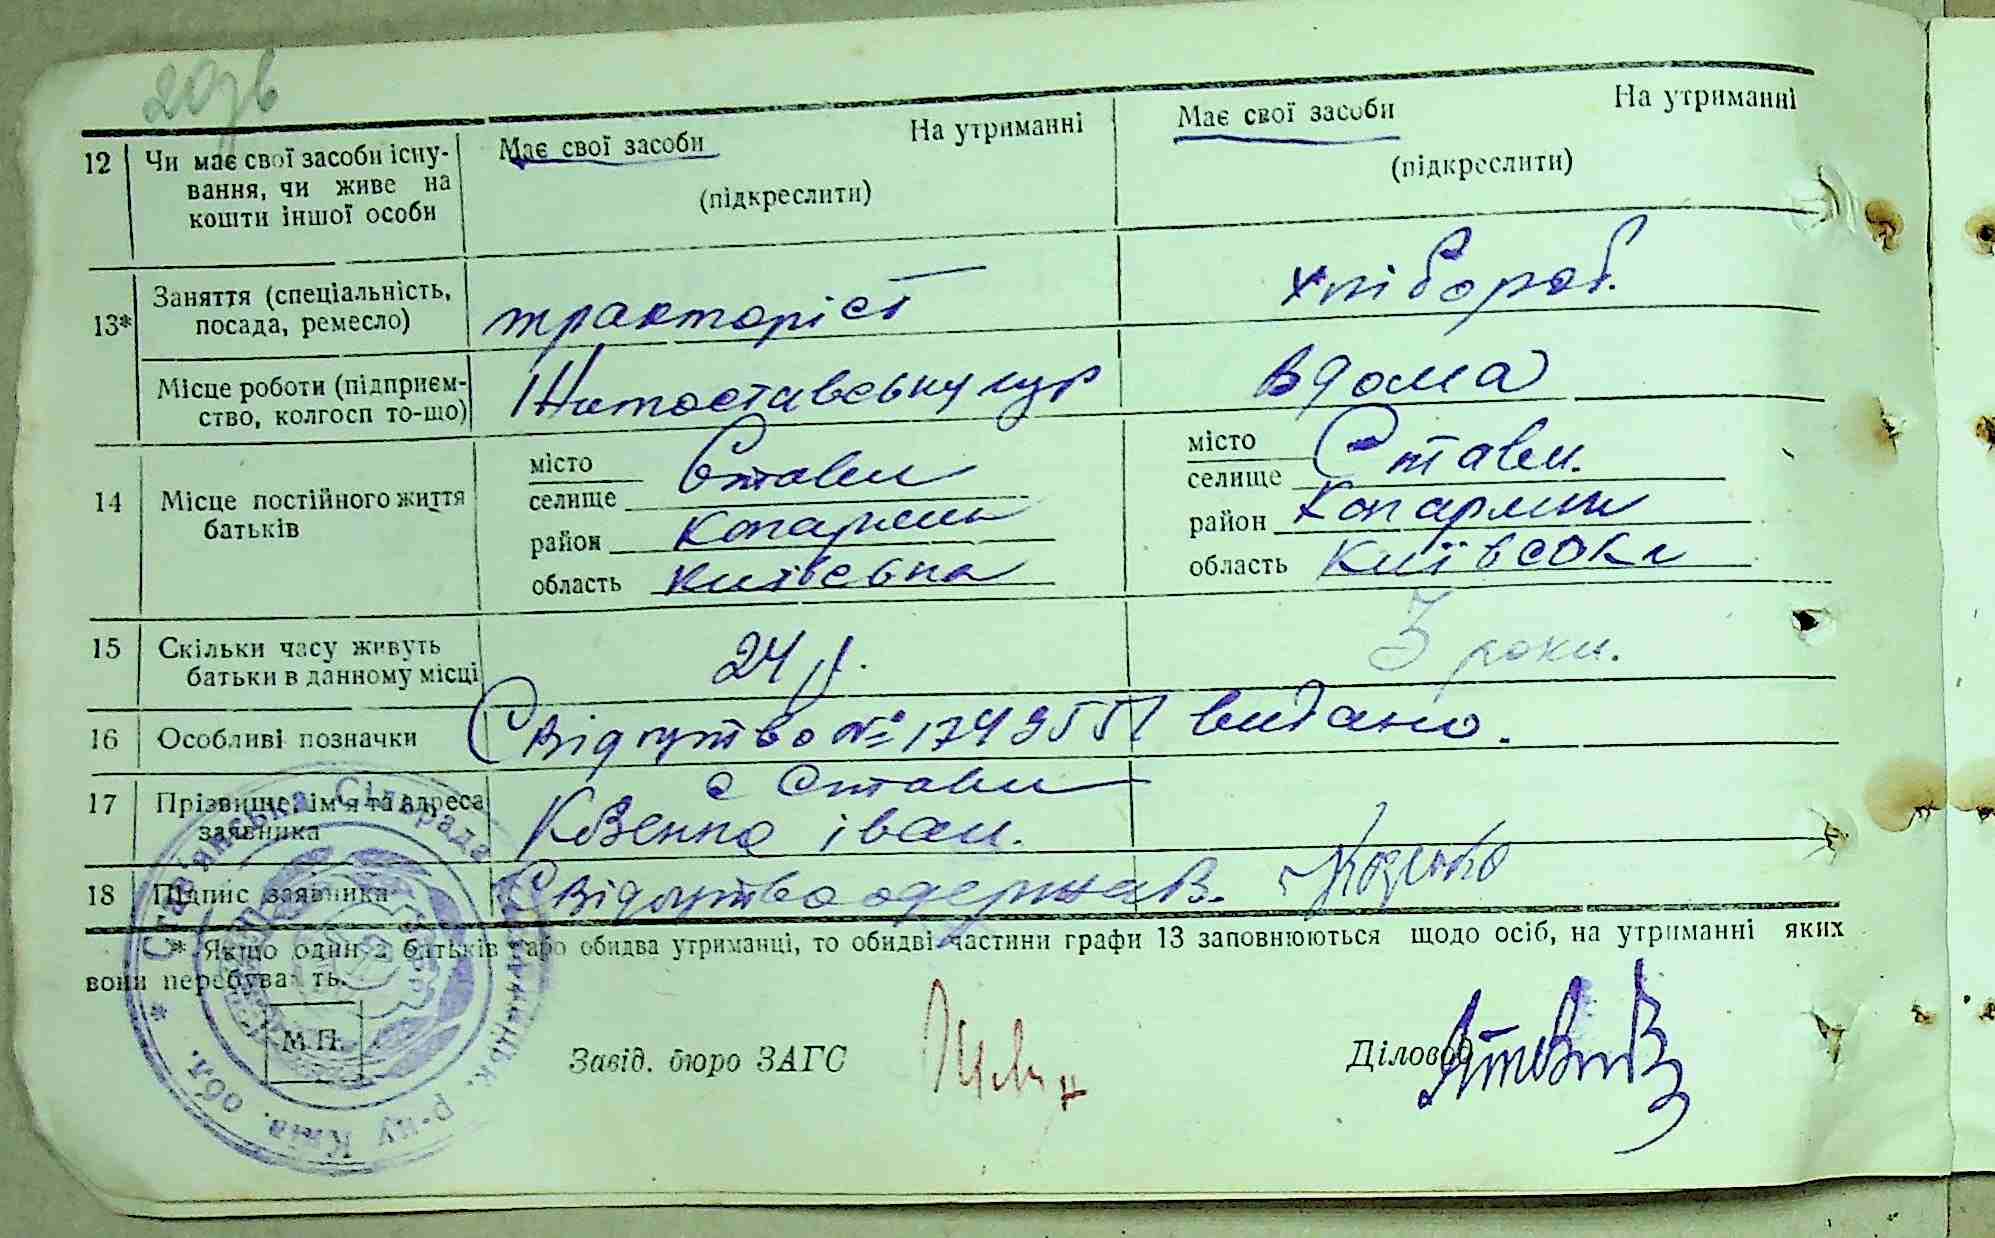 20зв
Має свої засоби На утриманні Має свої засоби На утриманні
12 Чи має свої засоби існу-
вання, чи живе на
кошти іншої особи
(підкреслити) (підкреслити)
13* Заняття (спеціальність,
посада, ремесло)
тракторіст хлібороб.
Місце роботи (підприєм-
ство, колгосп то-що)
вдома
14 Місце постійного життя
батьків
місто
селище Стави
район
область Київська
місто
селище Стави.
район
область
15 Скільки часу живуть
батьки в данному місці
24 р. 3 роки.
16 Особливі позначки Свідоцтво № видано.
17 Прізвище, ім'я та адреса
заявника
с Стави
іван.
18 Підпис заявника Свідоцтво одержав.
* Якщо один з батьків або обидва утриманці, то обидві частини графи 13 заповнюються щодо осіб, на утриманні яких
вони перебувають.
М.П.
Завід. бюро ЗАГС Діловод
Став'янська Сільрада
р-ну Київ. обл.